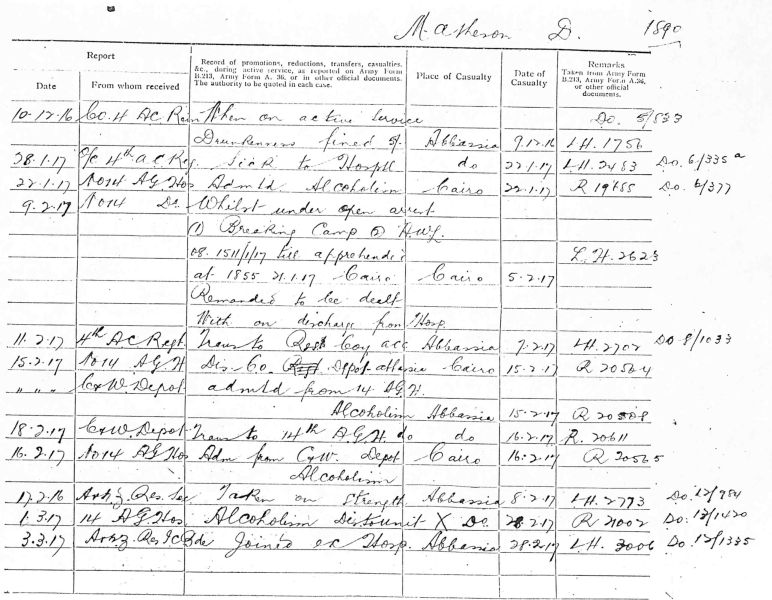 Matheson D. 1890
Report
Record of promotions, reductions, transfers, casualties, &c., during active service, as reported on Army Form B.213, Army Form A. 36, or in other official documents. The authority to be quoted in each case.
Place of Casualty
Date of Casualty
Remarks
Taken from Army Form B.213, Army Form A.36, or other official documents.
Date
From whom received
10-12-16 Co. 4 AC Regn When on active service Do. 5/533
Drunkenness fined 5/. Abbassia 9.12.16 LH. 1756
28.1.17 O/c 4th A C Reg. Sick to Hosptl do 22.1.17 LH. 2483 Do. 6/335 a
22.1.17 No 14 A G Hos Admtd Alcoholism Cairo 22.1.17 R 19455 Do. 6/377
9.2.17 No 14 Do. Whilst under open arrest
(1) Breaking Camp (2) A.W.L.
08.15 11/1/17 till apprehended L.H. 2623
at 1855 21.1.17 Cairo Cairo 5.2.17
Remanded to be dealt
With on discharge from Hosp.
11.2.17 4th A C Regt. Trans to Rest Coy acc Abbassia 7.2.17 LH. 2702 Do 8/1033
15.2.17 No 14 A G H. Dis. Co. Depot abbasia Cairo 15.2.17 R 20564
" " " C&W Depot admtd from 14 A.G.H.
Alcoholism Abbassia 15.2.17 R 20508
18.2.17 C&W Depot Trans to 14th A.G.H. do do 16.2.17 R. 20611
16.2.17 No 14 A G Hos Adm from C&W. Depot Cairo 16.2.17 R 20565
Alcoholism
17.2.16 A&NZ. Res. Sec Taken on Strength. Abbassia 8.2.17 LH. 2773 Do. 12/984
1.3.17 14 A G Hos Alcoholism Dis to unit X Do. 28.2.17 R 21002 Do. 13/1420
3.3.17 A&NZ. Res IC Bde Joined ex Hosp. Abbassia 28.2.17 LH. 3006 Do. 12/1335